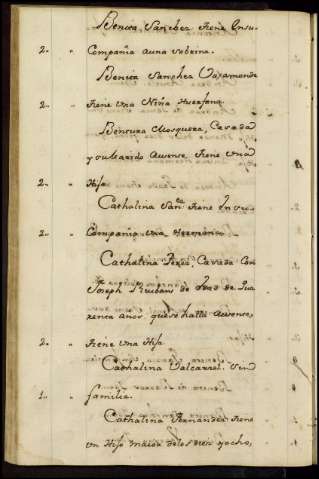 Benita Sanchez tiene en su
2.. " Compañia a una sobrina.
Benita Sanchez
2.. " tiene una Niña Huerfana.
Bentura Mosquera, Casada
y su Marido Ausente, tiene una
2.. " Hija
Cathalina San.. tiene en su
2.. " Compañia una Hermana
Cathalina Perez, Casada con
Joseph de edad de qua
renta años que se halla Ausente,
2.. " tiene una Hija
Cathalina Valcarzel sin
1.. " familia.
Cathalina Fernandez tiene
un Hijo maior de los diez y ocho,